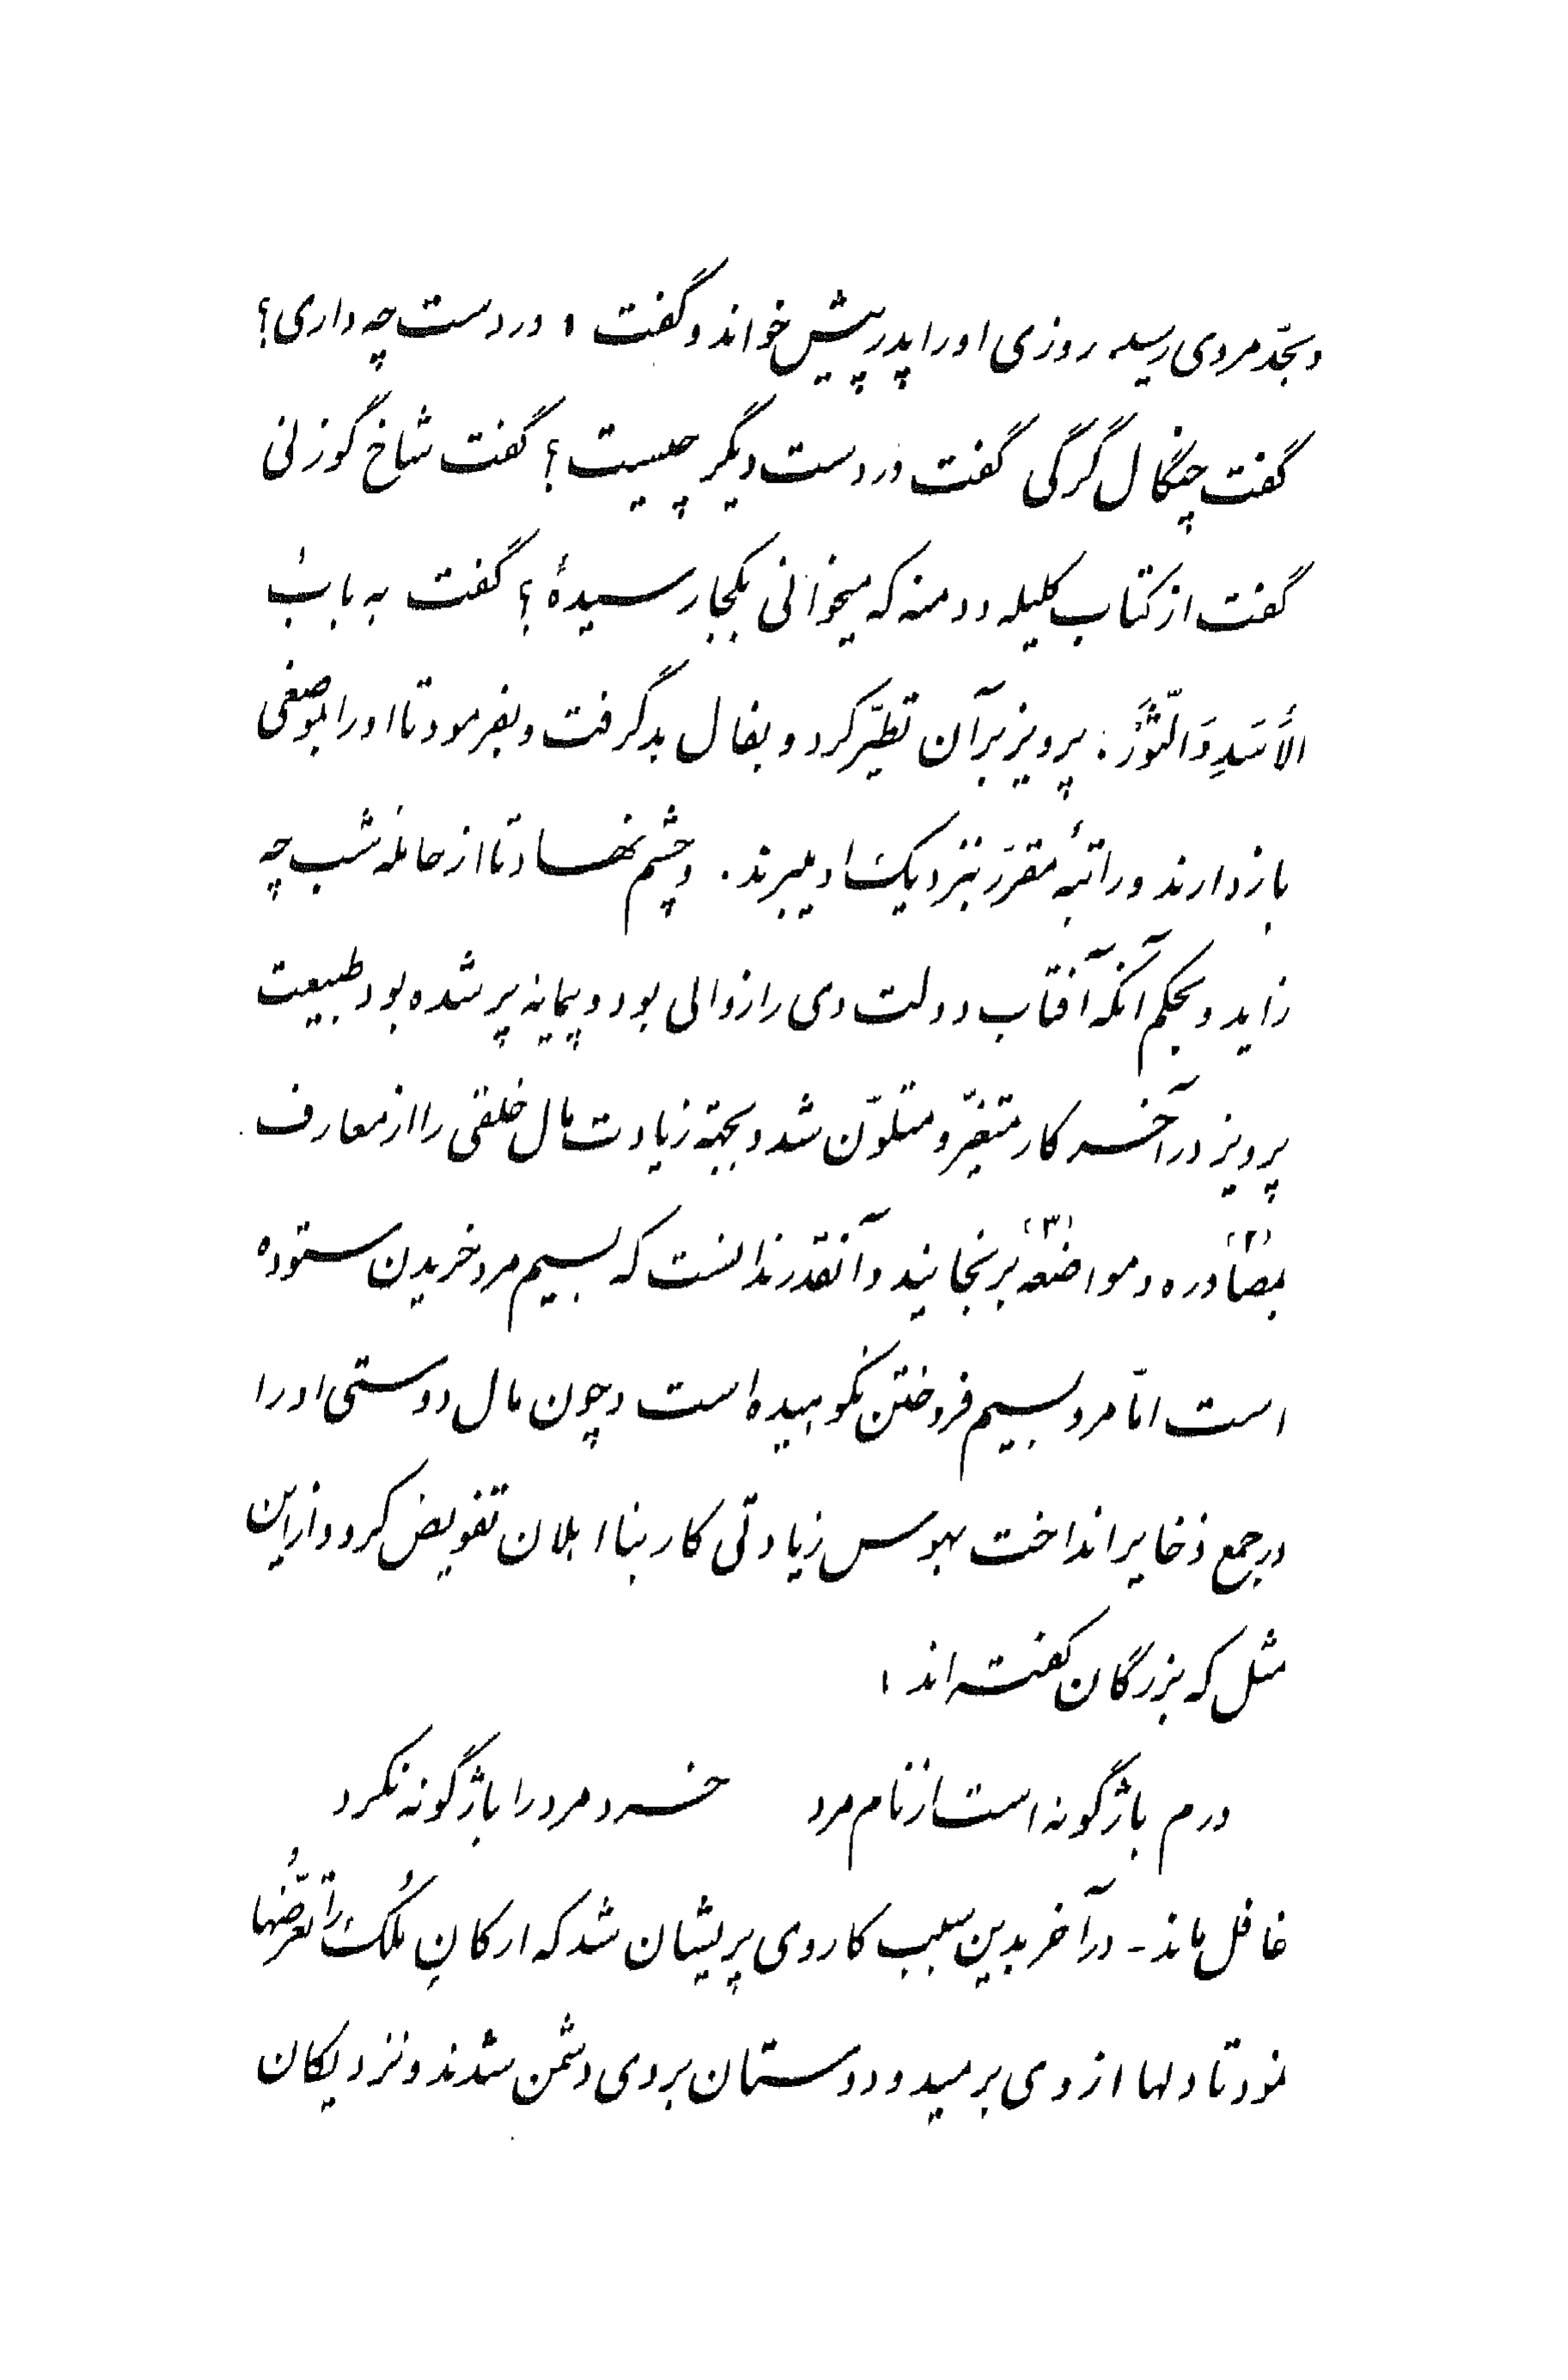 و بحدّ مردی رسید روزی او را پدر پیش خواند و گفت ، در دست چه داری؟
گفت چنگال گرگی گفت در دست دیگر چیست؟ گفت شاخ گوزنی
گفت از کتاب کلیله و دمنه که میخوانی بکجا رسیدهٔ؟ گفت به بابُ
الأَسَدِ وَالثَّوْرُ. پرویز بر آن تطیّر کرد و بفال بد گرفت و بفرمود تا او را بموضعی
باز دارند و راتبهٔ مقرّر بنزدیک او میبرند. و چشم نهاد تا از حاملهٔ شب چه
زاید و بحکم آنکه آفتاب دولت وی را زوالی بود و پیمانه پر شده بود طبیعت
پرویز در آخر کار متغیّر و متلوّن شد و بجهة زیادت مال خلقی را از معارف
بمصادره (۲) و مواضعه (۳) برنجانید و آنقدر ندانست که بسیم مرد خریدن ستوده
است امّا مرد بسیم فروختن نکوهیده است و چون مال دوستی او را
در جمع ذخایر انداخت بهوس زیادتی کار بنا اهلان تفویض کرد و از این
مثل که بزرگان گفته اند ،
درم باژگونه است از نام مرد خرد مرد را باژگونه نکرد
غافل ماند - در آخر بدین سبب کار وی پریشان شد که ارکانِ مُلک را تعرّضُها
نمود تا دلها از وی برمید و دوستان بر وی دشمن شدند و نزدیکان